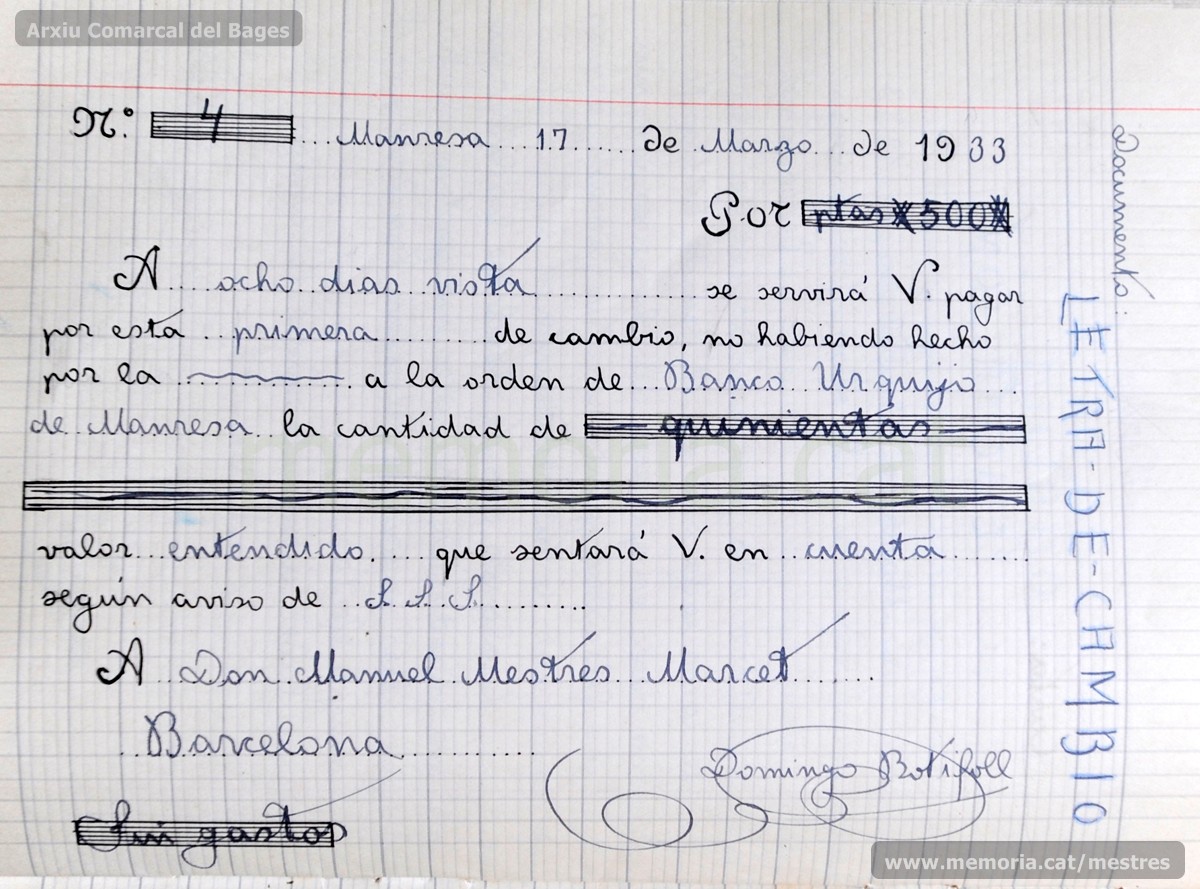 Arxiu Comarcal del Bages
N.º 4 Manresa 17 de Marzo de 1933
Por ptas 500
A ocho dias vista se servirá V. pagar
por esta primera de cambio, no habiendo hecho
por la a la orden de Banco Urquijo
de Manresa la cantidad de quinientas
valor entendido. que sentará V. en cuenta
según aviso de S. S. S.
A Don Manuel Mestres Marcet
Barcelona
Domingo Botifoll
Sin gastos
Documento:
LETRA-DE-CAMBIO
memoria.cat
www.memoria.cat/mestres